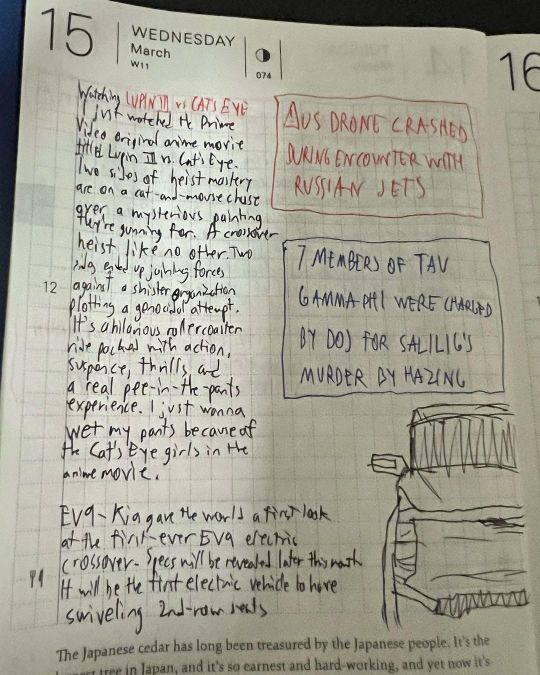 15
WEDNESDAY
March
W11
074
16
Watching LUPIN III vs CAT'S EYE
I just watched the Prime
Video original anime movie
titled Lupin III vs. Cat's Eye.
Two sides of heist mastery
are on a cat-and-mouse chase
over a mysterious painting
they're gunning for. A crossover
heist like no other. Two
sides ended up joining forces
12
against a sinister organization
plotting a genocidal attempt.
It's a hilarious rollercoaster
ride packed with action,
suspence, thrills, and
a real pee-in-the-pants
experience. I just wanna
wet my pants because of
the Cat's Eye girls in the
anime movie.
A US DRONE CRASHED
DURING ENCOUNTER WITH
RUSSIAN JETS
7 MEMBERS OF TAU
GAMMA PHI WERE CHARGED
BY DOJ FOR SALILIG'S
MURDER BY HAZING
EV9 - Kia gave the world a first look
at the first-ever EV9 electric
crossover. Specs will be revealed later this month
It will be the first electric vehicle to have
swiveling 2nd-row seats
The Japanese cedar has long been treasured by the Japanese people. It's the
tree in Japan, and it's so earnest and hard-working, and yet now it's